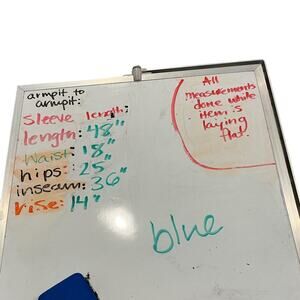 armpit to
armpit:
sleeve length:
length: 48"
waist: 18"
hips: 25"
inseam: 36"
rise: 14"
All
measurements
done while
item is
laying
flat.
blue